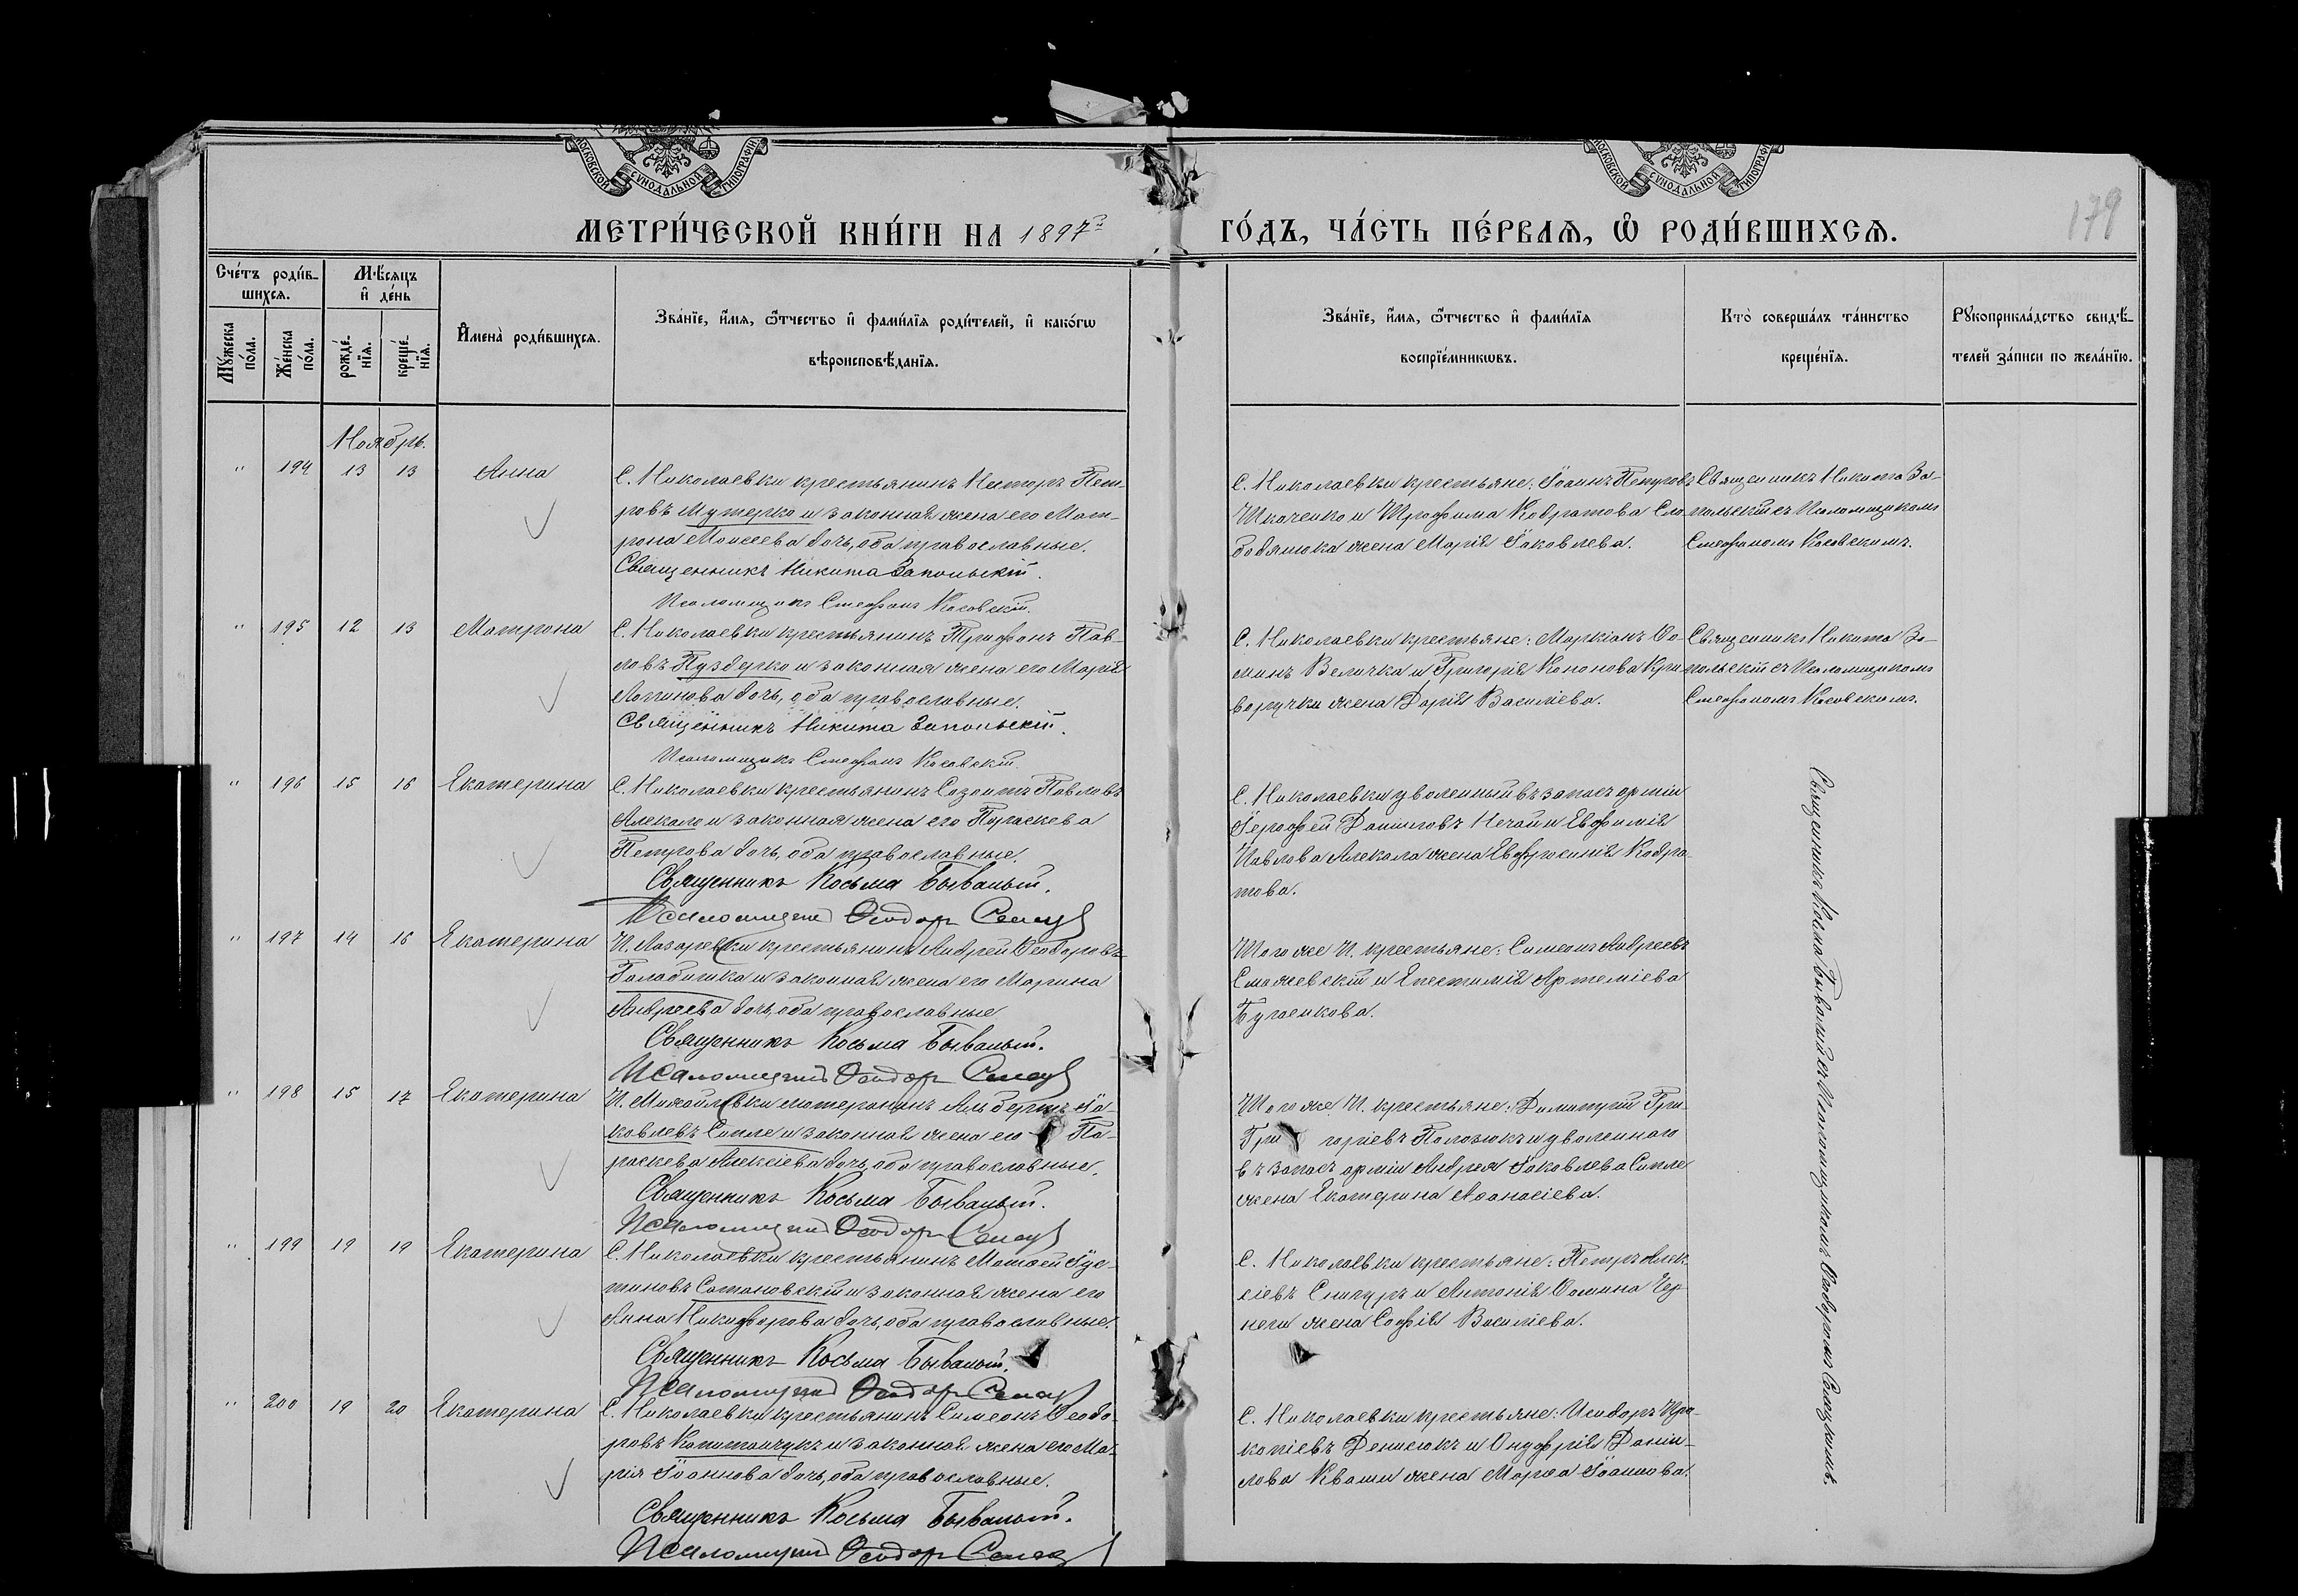 МОСКОВСКОЙ СУНОДАЛЬНОЙ ТИПОГРАФІИ
МОСКОВСКОЙ СУНОДАЛЬНОЙ ТИПОГРАФІИ
МЕТРИ́ЧЕСКОЙ КНИ́ГИ НА 1897й
ГО́ДЪ, ЧА́СТЬ ПЕ́РВАѦ, Ѡ҆ РОДИ́ВШИХСѦ.
179
Сче́тъ роди́в-
шихсѧ.
Мѣ́сѧцъ
и҆ де́нь
Мꙋ́жеска
по́ла.
Же́нска
по́ла.
рожде́-
нїѧ.
креще́-
нїѧ.
И҆мена̀ роди́вшихсѧ.
Зва́нїе, и҆́мѧ, ѻ҆́тчество и҆ фами́лїѧ роди́телей, и҆ како́гѡ
вѣроисповѣ́данїѧ.
Зва́нїе, и҆́мѧ, ѻ҆́тчество и҆ фами́лїѧ
воспрїе́мникѡвъ.
Кто̀ соверша́лъ та́инство
креще́нїѧ.
Рꙋкоприкла́дство свидѣ́-
телей за́писи по жела́нїю.
Ноябрь.
" 194 13 13 Анна
С. Николаевки крестьянинъ Нестор Пет-
ровъ Мутерко и законная жена его Мат-
рона Моисеева дочь, оба православные.
Священникъ Никита Запольскій.
Псаломщикъ Стефанъ Косовскій.
С. Николаевки крестьяне: Іоаннъ Петровъ
Ткаченко и Трофима Кодратова Сло-
бодянюка жена Марія Іаковлева.
Священникъ Никита За-
польскій съ Псаломщикомъ
Стефаномъ Косовскимъ.
" 195 12 13 Матрона
С. Николаевки крестьянинъ Трифонъ Пав-
ловъ Пуздерко и законная жена его Марія
Логинова дочь, оба православные.
Священникъ Никита Запольскій.
Псаломщикъ Стефанъ Косовскій.
С. Николаевки крестьяне: Маркіанъ Ѳо-
минъ Величка и Григорія Кононова Кри-
воручки жена Дарія Василіева.
Священникъ Никита За-
польскій съ Псаломщикомъ
Стефаномъ Косовскимъ.
" 196 15 16 Екатерина
С. Николаевки крестьянинъ Созонтъ Павловъ
Алекало и законная жена его Параскева
Петрова дочь, оба православные.
Священникъ Косьма Бывалый.
Псаломщикъ Ѳеодоръ
С. Николаевки уволенный въ запасъ арміи
Іероѳей Даниловъ Нечай и Евфимія
Павлова Алекала жена Евфросинія Кодра-
това.
Священникъ Косьма Бывалый съ Псаломщикомъ Ѳеодоромъ
" 197 14 16 Екатерина
П. Лазаревки крестьянинъ Андрей Ѳеодоровъ
Голабитка и законная жена его Марина
Андреева дочь, оба православные
Священникъ Косьма Бывалый.
Псаломщикъ Ѳеодоръ
Того же П. крестьяне: Симеонъ Андреевъ
Смажевскій и Епестимія Артеміева
Бугаенкова.
" 198 15 17 Екатерина
П. Михайловки лютеранинъ Альбертъ Іа-
ковлевъ Сипле и законная жена его Па-
раскева Алексіева дочь, оба православные.
Священникъ Косьма Бывалый.
Псаломщикъ Ѳеодоръ
Того же П. крестьяне: Димитрій Гри-
Гри горіевъ Полозюкъ и уволеннаго
въ запасъ арміи Андрея Іаковлева Сипле
жена Екатерина Аѳанасіева.
" 199 19 19 Екатерина
С. Николаевки крестьянинъ Матѳей Іус-
тиновъ Сатановскій и законная жена его
Анна Никифорова дочь, оба православные.
Священникъ Косьма Бывалый.
Псаломщикъ Ѳеодоръ
С. Николаевки крестьяне: Петръ Алек-
сіевъ Снигуръ и Антонія Ѳомина Чер-
неги жена Софія Василіева.
" 200 19 20 Екатерина
С. Николаевки крестьянинъ Симеонъ Ѳеодо-
ровъ Капитанчукъ и законная жена его Ма-
рія Іоаннова дочь, оба православные.
Священникъ Косьма Бывалый.
Псаломщикъ Ѳеодоръ
С. Николаевки крестьяне: Исидоръ Про-
копіевъ Денисюкъ и Онуфрія Дани-
лова Кваши жена Марѳа Іоаннова.